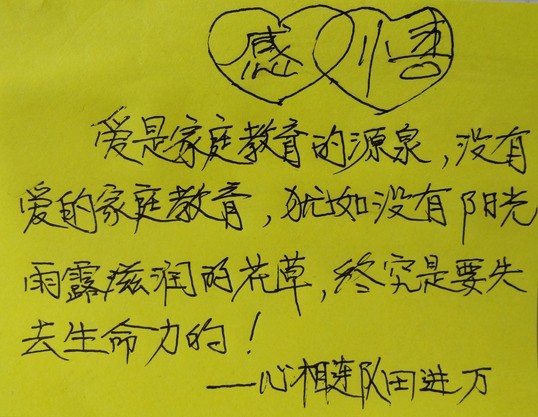 感悟
爱是家庭教育的源泉,没有
爱的家庭教育,犹如没有阳光
雨露滋润的花草,终究是要失
去生命力的!
——心相连队田进万